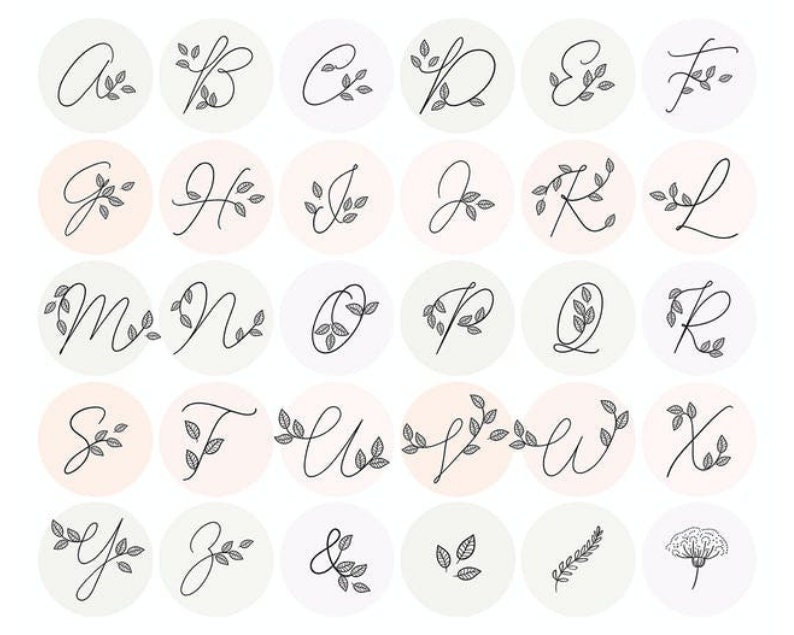 A B C D E F
G H I J K L
M N O P Q R
S T U V W X
Y Z &